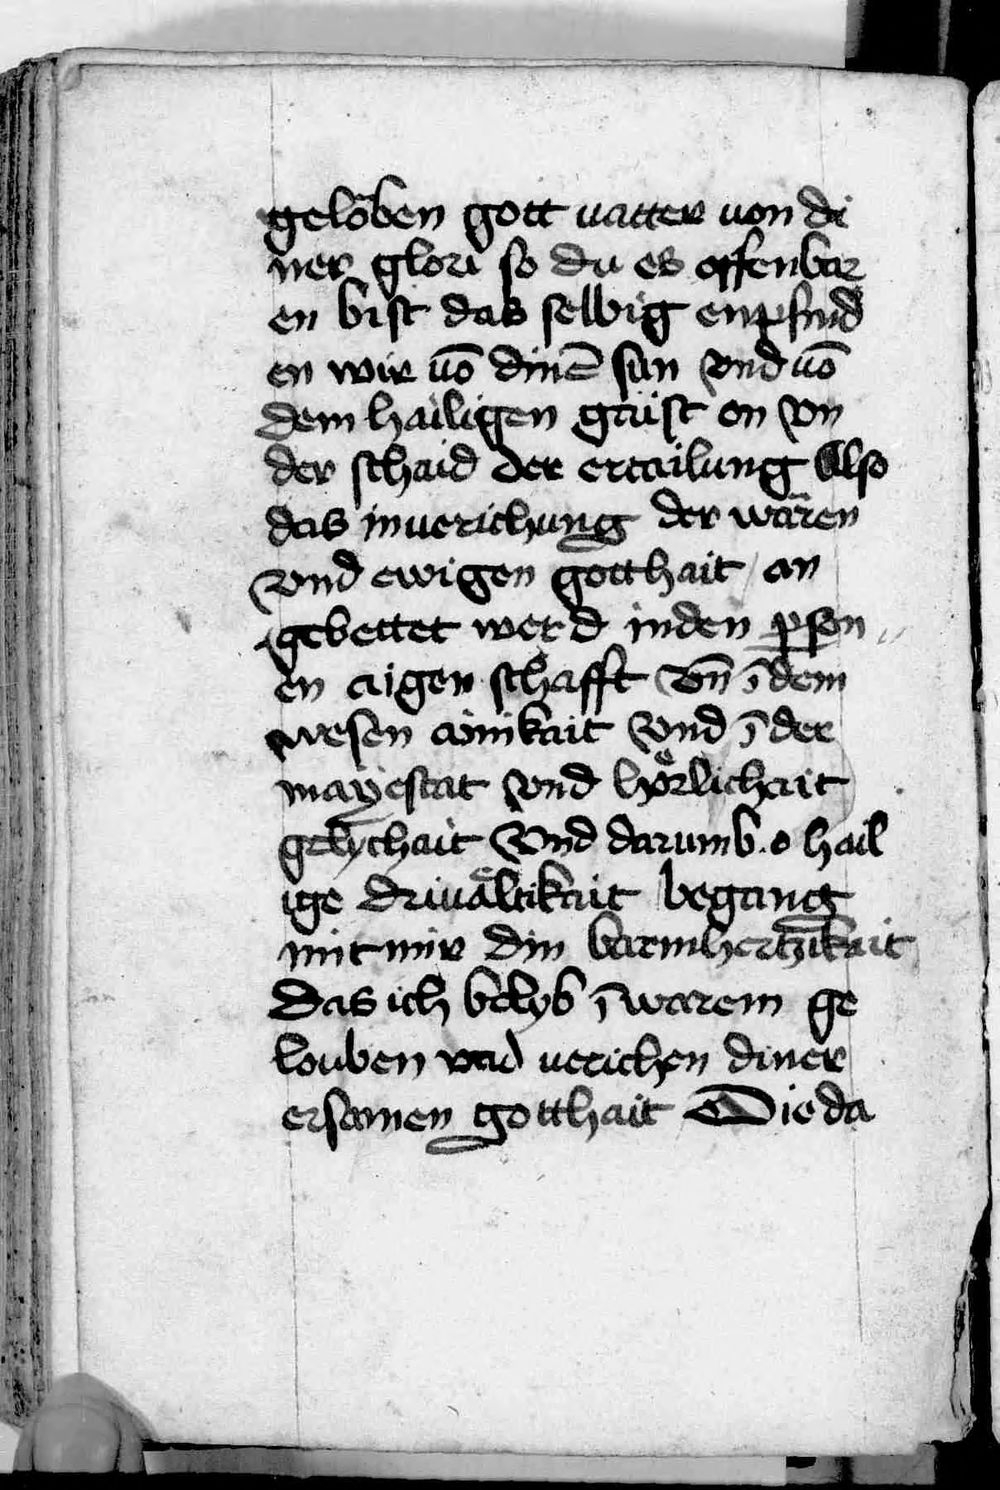 gelo᷄ben gott uatter uon di
ner glori so du es offenbar
en bist das selbig enpfind
en wir uō dinē sun vnd uō
dem hailigen gaist on vn
der schaid der ertailung Also
das in uerichung der waren
vnd ewigen gotthait an
gebettet werd in den ꝑson
en aigen schafft vn̄ ī dem
wesen ainikait vnd ī der
mayestat vnd hoͤrlichait
gelychait Vnd darumb o hail
ige driuaͤltikait begang
mit mir din barmhertzikait
Das ich belyb ī warem ge
louben vnd uerichen diner
ersamen gotthait Die da